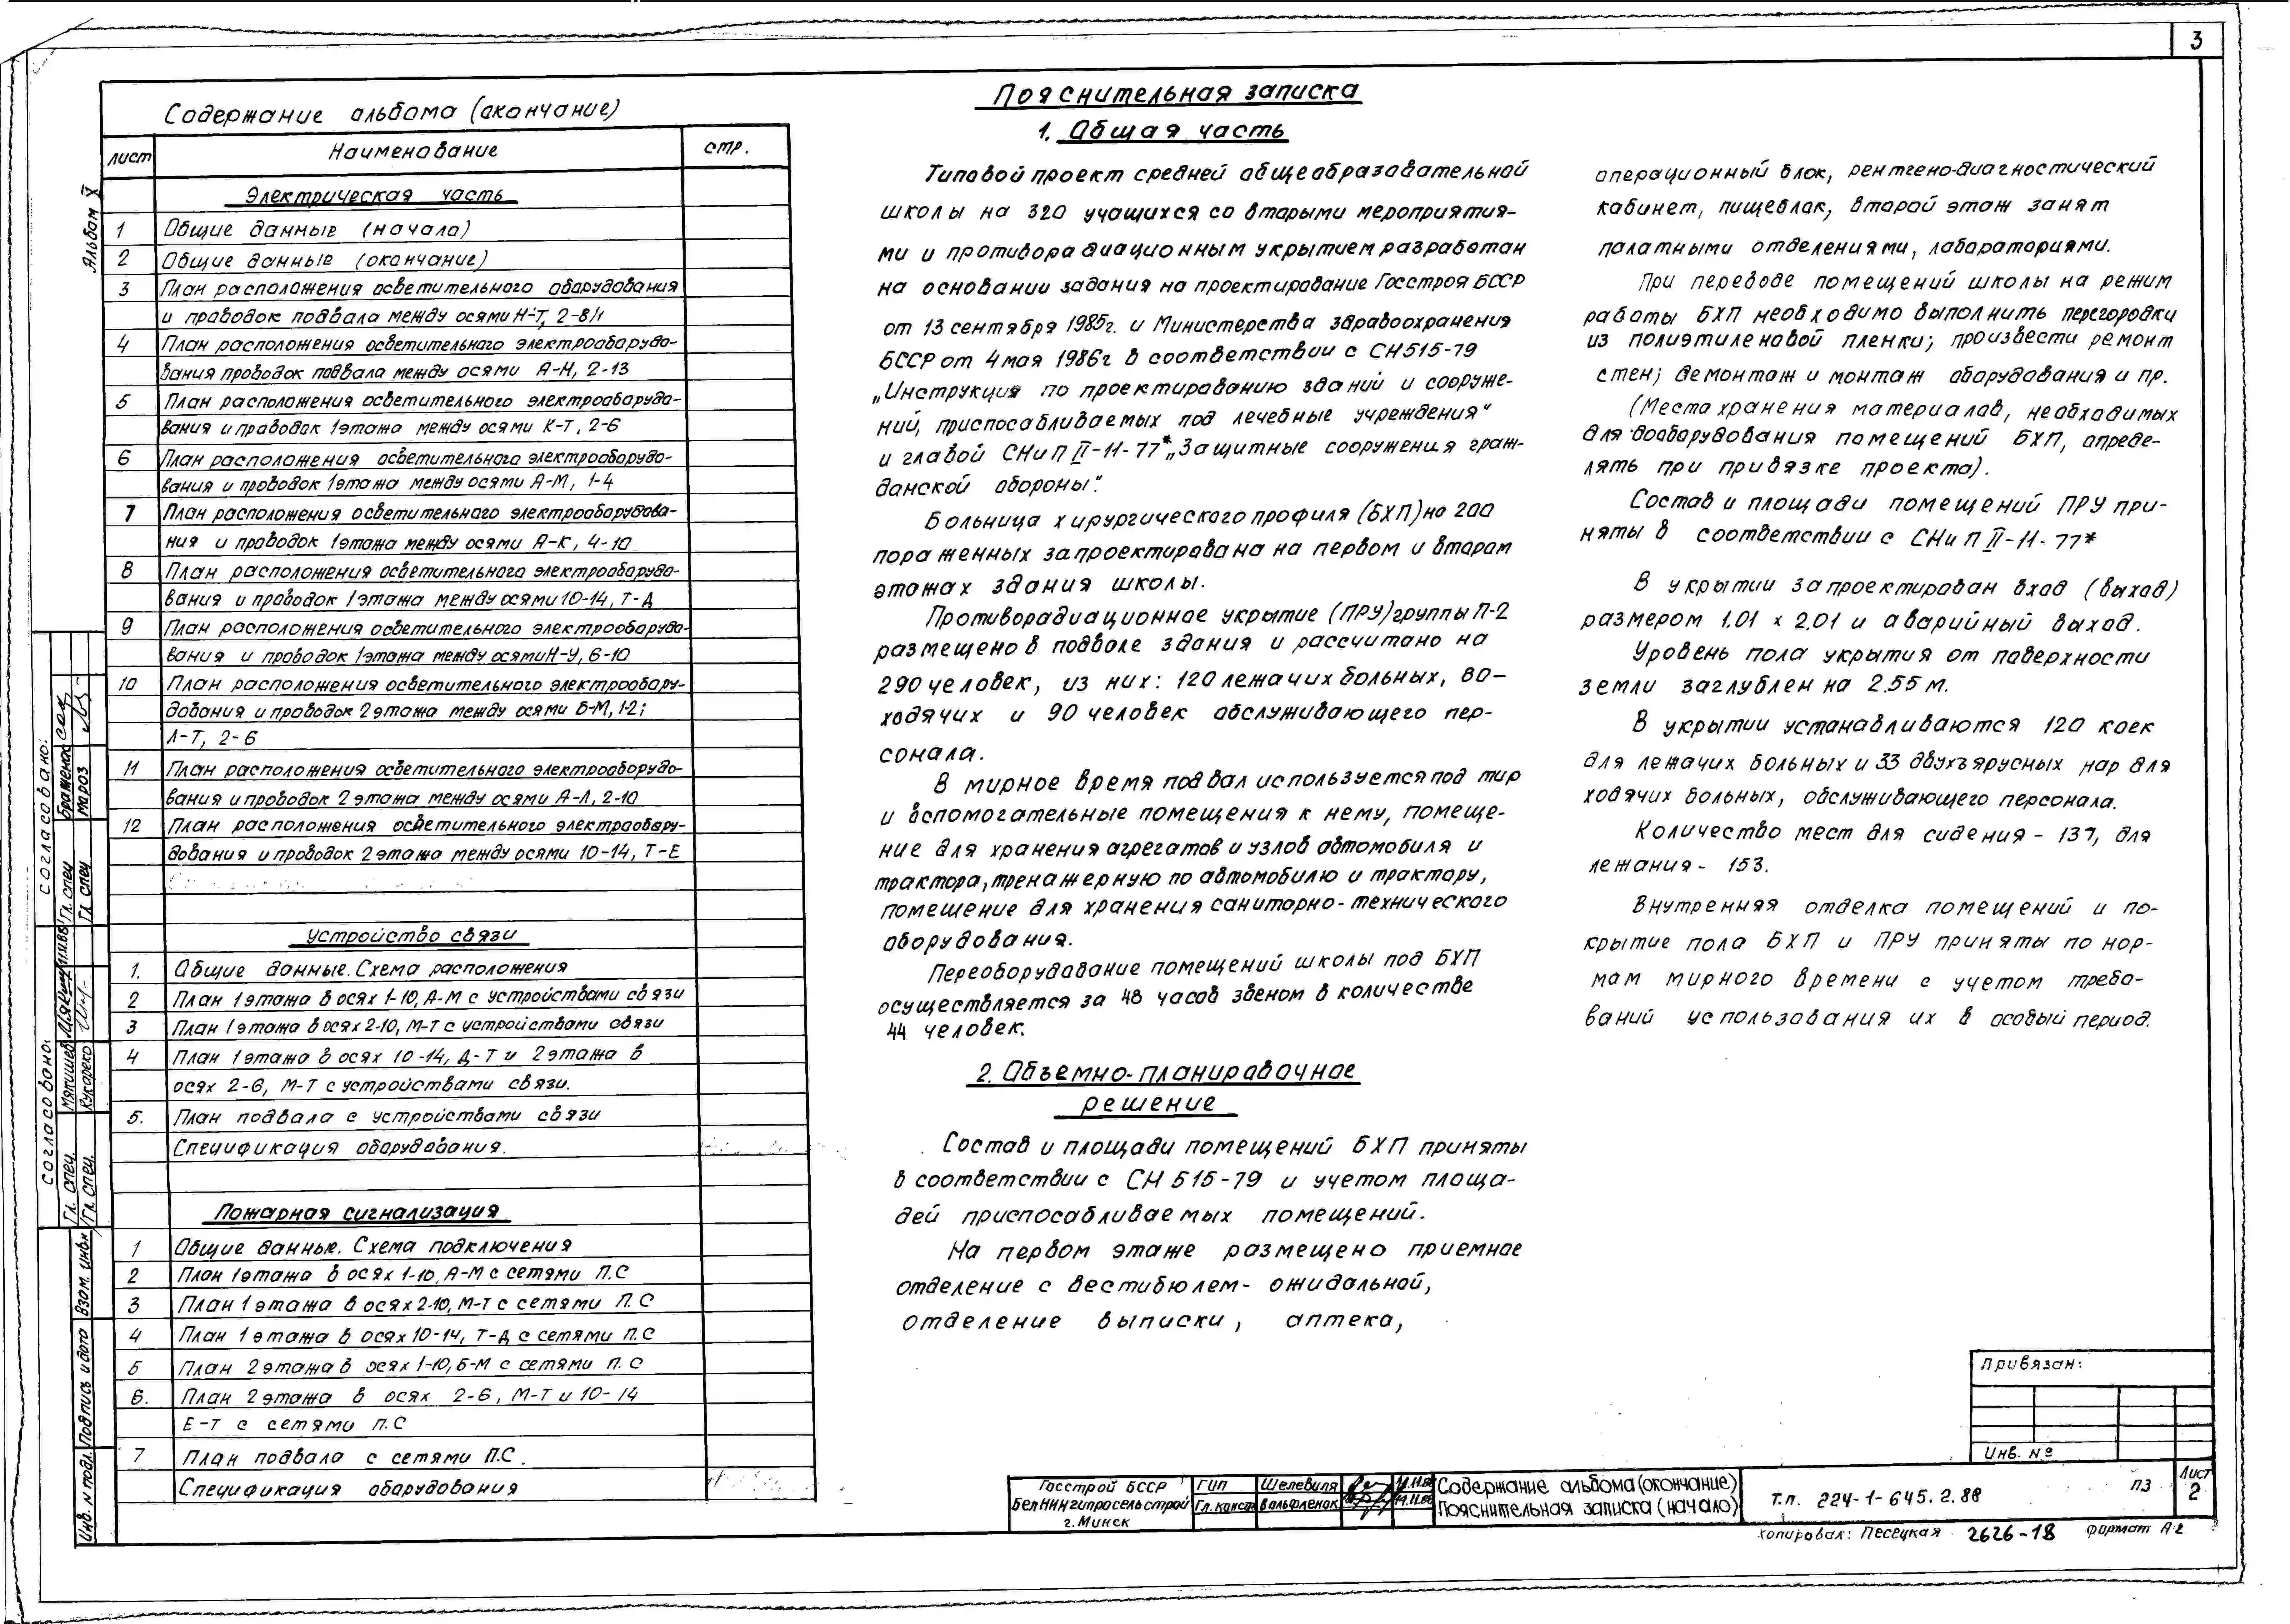 3
Альбом X
Содержание альбома (окончание)
лист Наименование стр.
Электрическая часть
1 Общие данные (начало)
2 Общие данные (окончание)
3 План расположения осветительного оборудования
и проводок подвала между осями Н-Т, 2-8/1
4 План расположения осветительного электрооборудо-
вания проводок подвала между осями А-Н, 2-13
5 План расположения осветительного электрооборудо-
вания и проводок 1этажа между осями К-Т, 2-6
6 План расположения осветительного электрооборудо-
вания и проводок 1этажа между осями А-М, 1-4
7 План расположения осветительного электрооборудова-
ния и проводок 1этажа между осями А-К, 4-10
8 План расположения осветительного электрооборудо-
вания и проводок 1этажа между осями 10-14, Т-Д
9 План расположения осветительного электрооборудо-
вания и проводок 1этажа между осями Н-У, 6-10
10 План расположения осветительного электрообору-
дования и проводок 2этажа между осями Б-М, 1-2;
Л-Т, 2-6
11 План расположения осветительного электрооборудо-
вания и проводок 2 этажа между осями А-Л, 2-10
12 План расположения осветительного электрообору-
дования и проводок 2этажа между осями 10-14, Т-Е
Устройство связи
1. Общие данные. Схема расположения
2 План 1этажа в осях 1-10, А-М с устройствами связи
3 План 1этажа в осях 2-10, М-Т с устройствами связи
4 План 1этажа в осях 10-14, Д-Т и 2этажа в
осях 2-6, М-Т с устройствами связи.
5. План подвала с устройствами связи
Спецификация оборудования.
Пожарная сигнализация
1 Общие данные. Схема подключения
2 План 1этажа в осях 1-10, А-М с сетями П.С
3 План 1этажа в осях 2-10, М-Т с сетями П.С
4 План 1этажа в осях 10-14, Т-Д с сетями П.С
5 План 2этажа в осях 1-10, Б-М с сетями П.С
6. План 2этажа в осях 2-6, М-Т и 10-14
Е-Т с сетями П.С
7 План подвала с сетями П.С.
Спецификация оборудования
Пояснительная записка
1. Общая часть
Типовой проект средней общеобразовательной
школы на 320 учащихся со вторыми мероприятия-
ми и противорадиационным укрытием разработан
на основании задания на проектирование Госстроя БССР
от 13 сентября 1985г. и Министерства здравоохранения
БССР от 4 мая 1986г в соответствии с СН515-79
„Инструкция по проектированию зданий и сооруже-
ний, приспосабливаемых под лечебные учреждения"
и главой СНиП II-11-77* „Защитные сооружения граж-
данской обороны".
Больница хирургического профиля (БХП) на 200
пораженных запроектирована на первом и втором
этажах здания школы.
Противорадиационное укрытие (ПРУ) группы П-2
размещено в подвале здания и рассчитано на
290 человек, из них: 120 лежачих больных, 80-
ходячих и 90 человек обслуживающего пер-
сонала.
В мирное время подвал используется под тир
и вспомогательные помещения к нему, помеще-
ние для хранения агрегатов и узлов автомобиля и
трактора, тренажерную по автомобилю и трактору,
помещение для хранения санитарно-технического
оборудования.
Переоборудование помещений школы под БХП
осуществляется за 48 часов звеном в количестве
44 человек.
2. Объемно-планировочное
решение
Состав и площади помещений БХП приняты
в соответствии с СН 515-79 и учетом площа-
дей приспосабливаемых помещений.
На первом этаже размещено приемное
отделение с вестибюлем- ожидальной,
отделение выписки, аптека,
операционный блок, рентгено-диагностический
кабинет, пищеблок, второй этаж занят
палатными отделениями, лабораториями.
При переводе помещений школы на режим
работы БХП необходимо выполнить перегородки
из полиэтиленовой пленки; произвести ремонт
стен; демонтаж и монтаж оборудования и пр.
(Места хранения материалов, необходимых
для дооборудования помещений БХП, опреде-
лять при привязке проекта).
Состав и площади помещений ПРУ при-
няты в соответствии с СНиП II-11-77*
В укрытии запроектирован вход (выход)
размером 1.01 х 2.01 и аварийный выход.
Уровень пола укрытия от поверхности
земли заглублен на 2.55 м.
В укрытии устанавливаются 120 коек
для лежачих больных и 33 двухъярусных нар для
ходячих больных, обслуживающего персонала.
Количество мест для сидения - 137, для
лежания - 153.
Внутренняя отделка помещений и по-
крытие пола БХП и ПРУ приняты по нор-
мам мирного времени с учетом требо-
ваний использования их в особый период.
Привязан:
Инв. №
Госстрой БССР
БелНИИгипросельстрой
г. Минск
ГИП Шелевиля 14.11.88
Гл. констр Вольфленок 14.11.88
Содержание альбома (окончание)
Пояснительная записка (начало)
Т.п. 224-1-645.2.88 ПЗ
Лист
2
копировал: Песецкая 2626-18 формат А2
Согласовано:
Гл. спец Браженас
Гл спец Мароз
Согласовано:
Гл. спец. Мякишев
Гл. спец. Кукареко
Взам. инв.н
Подпись и дата
Инв. N подл.